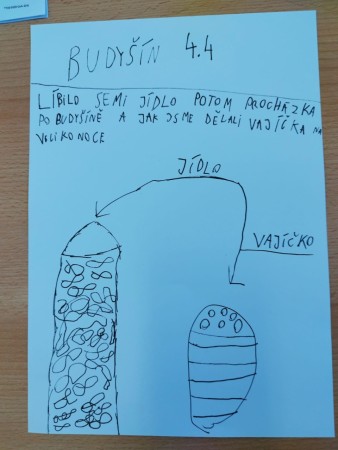 BUDYŠÍN 4.4
LÍBILO SEMI JÍDLO POTOM PROCHÁZKA
PO BUDYŠÍNĚ A JAK JSME DĚLALI VAJÍČKA NA
VELIKONOCE
JÍDLO
VAJÍČKO